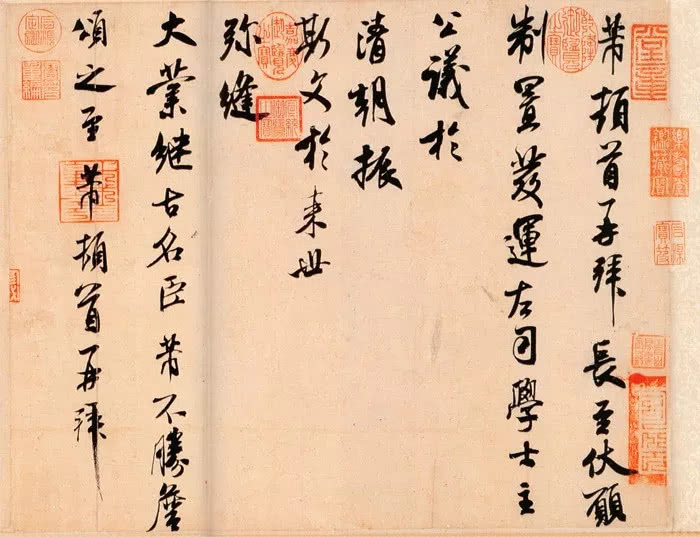 芾頓首再拜長至伏願
制置發運左司學士主
公議於
清朝振
斯文於來世
弥縫
大業繼古名臣芾不勝詹
頌之至芾頓首再拜